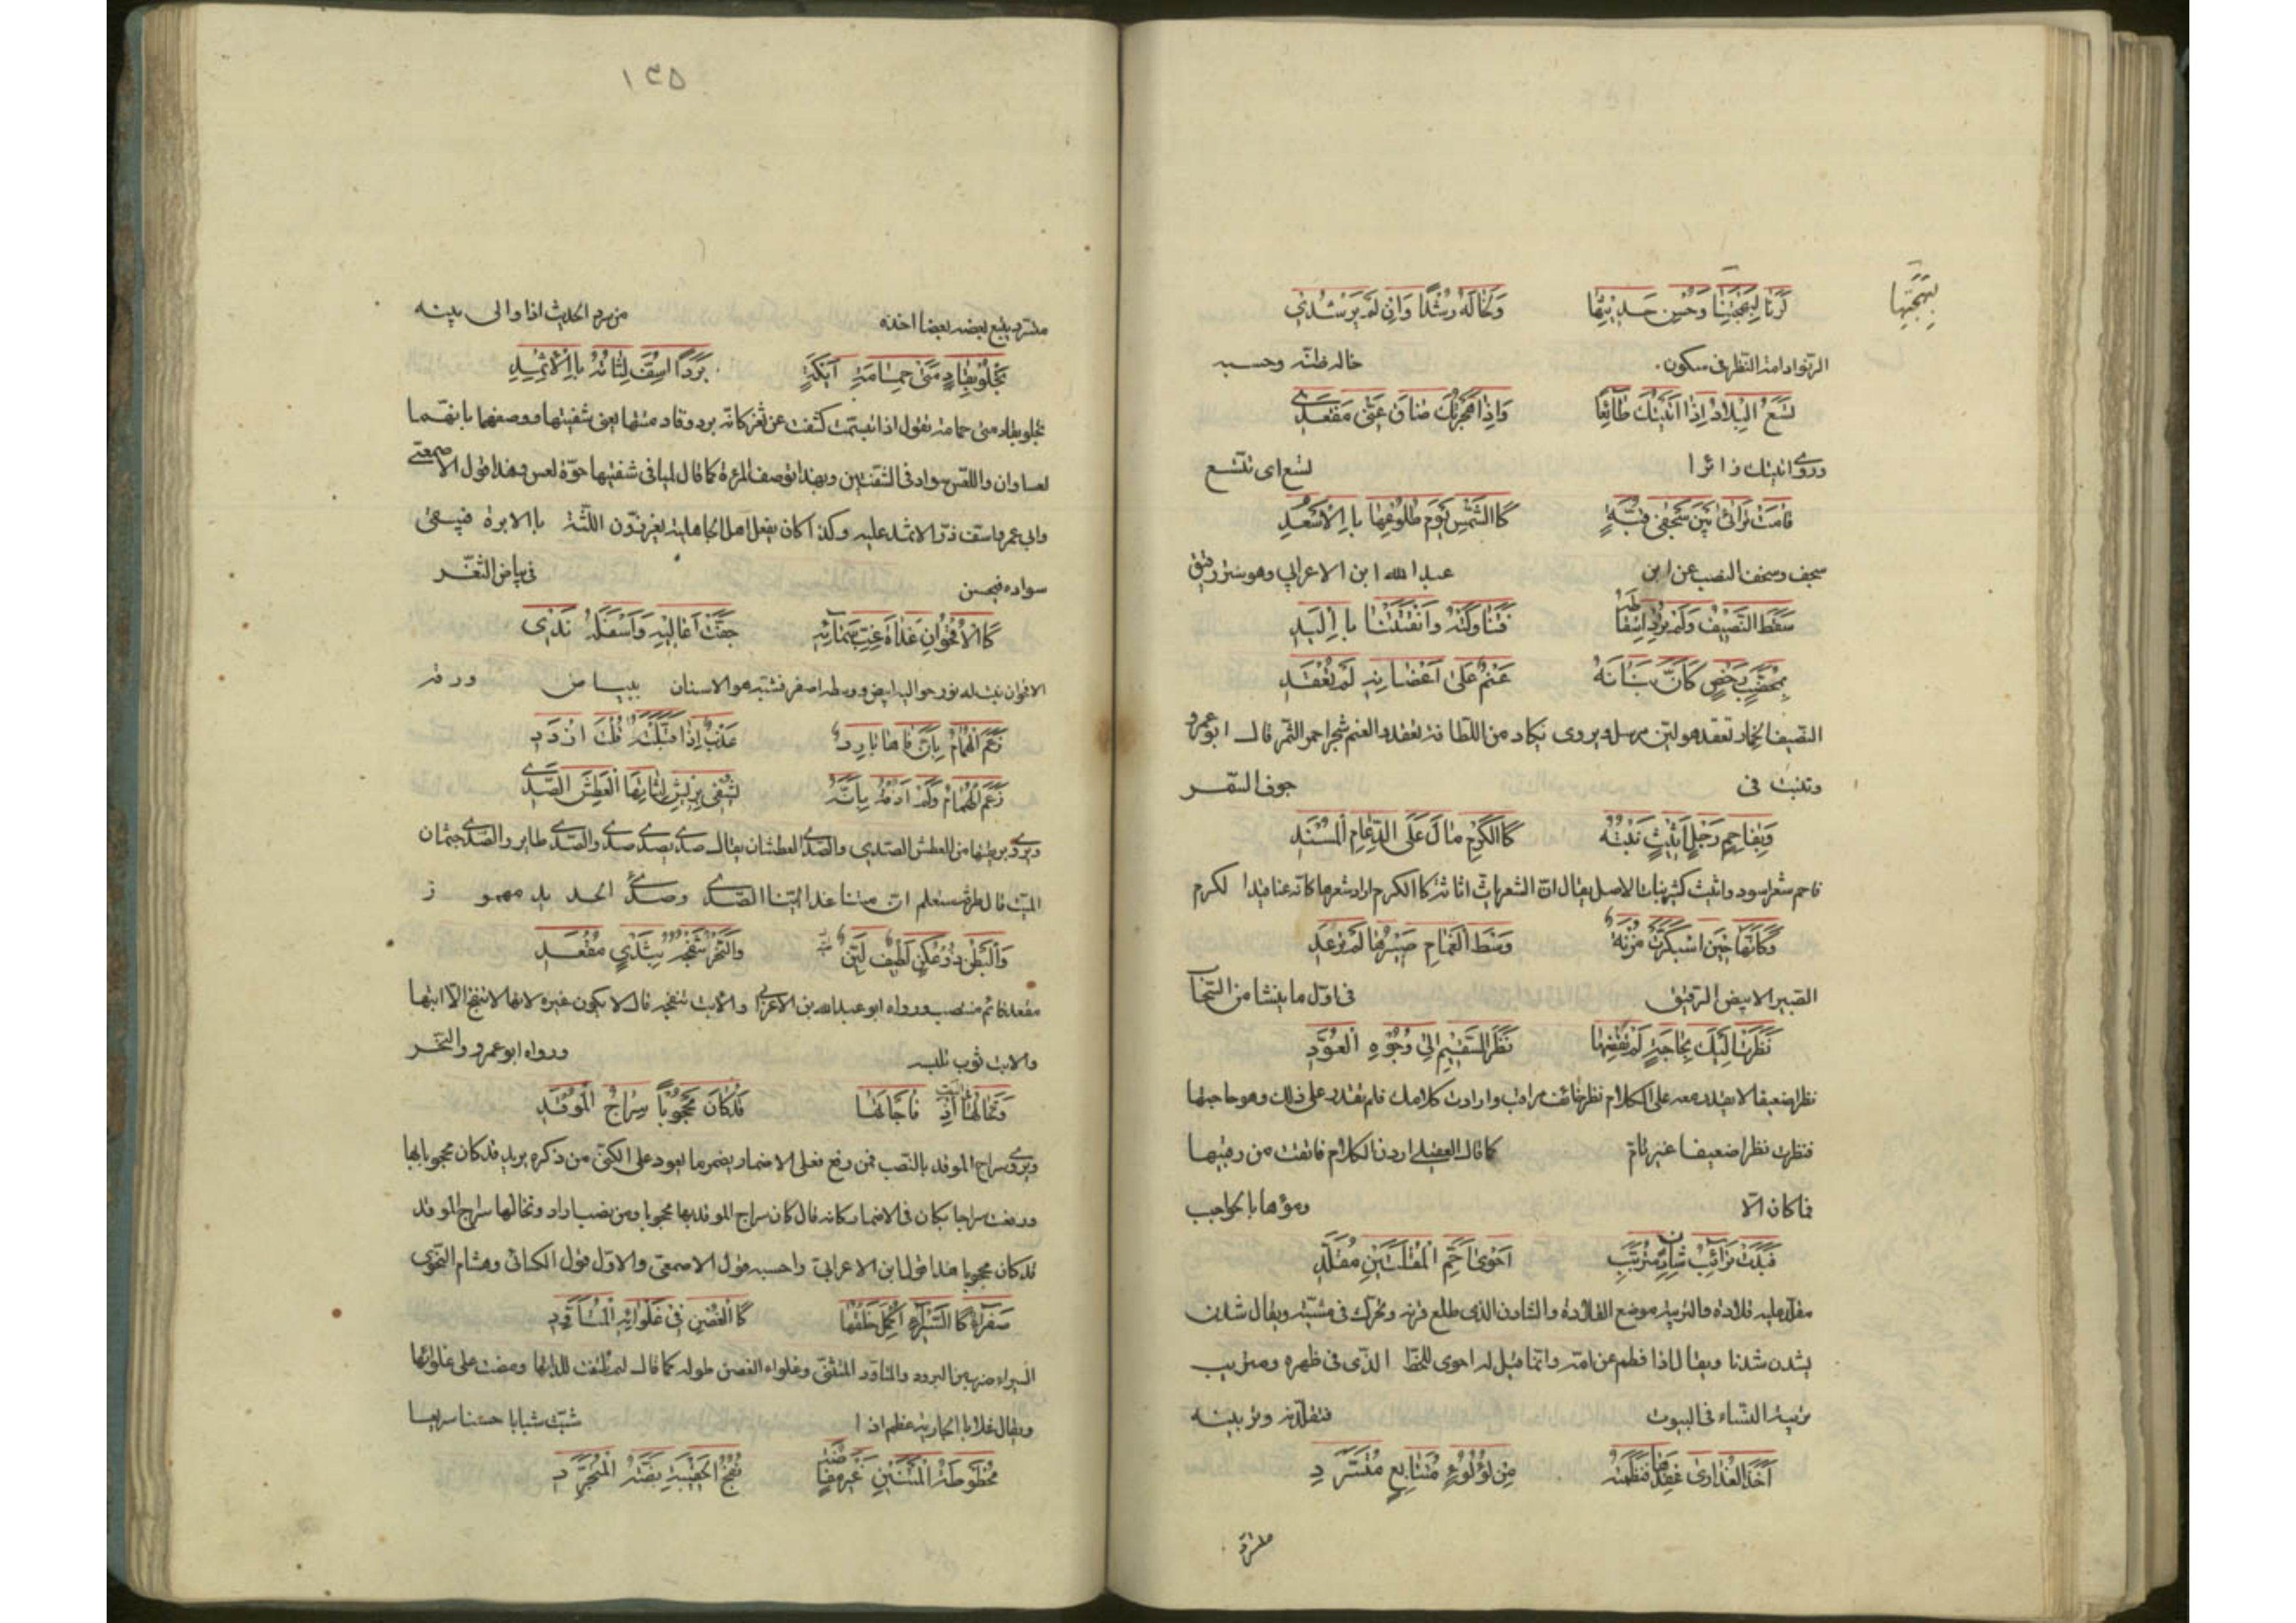 لَرَنَا لِبَهْجَتِنَا وَحُسْنِ حَدِيثِهَا وَلَخَالَهُ رُشْدًا وَاِنْ لَمْ يَرْشُدِي
لبَهْجَتِهَا
الرنو ادامة النظر في سكون خاله ظنّه وحسبه
تَسَعُ الْبِلَادُ اِذَا اَتَيْتُكَ طَائِعًا وَاِذَا هَجَرْتُكَ ضَاقَ عَنِّي مَقْعَدِي
وروى اتيتك زائرا تسع اى تتسع
قَامَتْ تَرَائٰى بَيْنَ سَجْفَيْ قُبَّةٍ كَا الشَّمْسِ يَوْمَ طُلُوعِهَا بِا الْاَسْعُدِ
سجف وسجف النصب عن ابن عبد الله ابن الاعرابي وهو ستر رقيق
سَقَطَ النَّصِيفُ وَلَمْ تُرِدْ اِسْقَاطَهُ فَتَنَاوَلَتْهُ وَاتَّقَتْنَا بِا الْيَدِ
بِمُخَضَّبٍ رَخْصٍ كَاَنَّ بَنَانَهُ عَنَمٌ عَلَى اَغْصَانِهِ لَمْ يُعْقَدِ
النصيف الخمار تعقد هو لين مرسل ويروى يكاد من اللطافة يعقد والعنم شجر احمر الثمر قال ابو عمرو
وتنبت فى جوف السّمر
وَبِفَاحِمٍ رَجْلٍ اَثِيثٍ نَبْتُهُ كَا الْكَرْمِ مَالَ عَلَى الدِّعَامِ الْمُسْنَدِ
فاحم شعر اسود واثيث كثير نبات الاصل يقال اثّ الشعر ياثّ اثاثة كا الكرم اراد شعرها كانه عناقيد الكرم
وَكَاَنَّهَا حِينَ اسْبَكَرَّتْ مُزْنَةٌ وَسْطَ الْغَمَامِ صَبِيرُهَا لَمْ يَرْعَدِ
الصبير الابيض الرقيق فى اوّل ما ينشا من السّحاب
نَظَرَتْ اِلَيْكَ بِحَاجَةٍ لَمْ تَقْضِهَا نَظَرَ السَّقِيمِ اِلٰى وُجُوهِ الْعُوَّدِ
نظرا ضعيفا لا يقدر معه على الكلام نظر خائف مراقب وارادت كلامك فلم تقدر على ذلك وهو حاجتها
فنظرت نظرا ضعيفا غير تامّ كما قال العقيلي اردن الكلام فاتقت من رقيبها
فما كان الّا ومؤها با لحواجب
فَبَدَتْ تَرَائِبُ شَادِنٍ مُتَرَبَّبِ اَحْوٰى اَحَمِّ الْمُقْلَتَيْنِ مُقَلَّدِ
مقلد عليه قلادة والتريبة موضع القلادة والشادن الذى طلع قرنه وتحرك فى مشيته ويقال شدن
يشدن شدنا ويقال اذا فطم عن امّه وانّما قيل له احوى للخط الذّى فى ظهره ومتربب
تربيه النساء فى البيوت فتقلّده وتزيينه
اَخَذَ الْعَذَارٰى عِقْدَهَا فَنَظَمْنَهُ مِنْ لُؤْلُؤٍ مُتَتَابِعٍ مُتَسَرِّدِ
متسرد
١٣٥
متسرد يتبع بعضه بعضا اخذه من سرد الحديث اذا والى بينه
تَجْلُو بِقَادِمَتَيْ حَمَامَةِ اَيْكَةٍ بَرَدًا اُسِفَّ لِثَاتُهُ بِا الْاِثْمِدِ
تجلو بقادمتى حمامة يقول اذا تبسّمت كشفت عن ثغر كانّه برد وقادمتها يعني شفيتها ووصفهما بانّهما
لعساوان واللعس سواد فى الشفتين وبهذا توصف المرءة كما قال لمياء فى شفتيها حوّة لعس وهذا قول الاصمعى
وابى عمرو اسف ذرّ الاثمد عليه وكذا كان يفعل اهل الجاهلية يغرزون اللثة با الابرة فيبقى
سواده فيحسن فى بياض الثّغر
كَا الْاُقْحُوَانِ غَدَاةَ غِبِّ سَمَائِهِ جَفَّتْ اَعَالِيهِ وَاَسْفَلُهُ نَدِي
الاقحوان نبت له نور حواليه ابيض ووسطه اصفر فشبّه هو الاسنان ببياض ورقه
زَعَمَ الْهُمَامُ بِاَنَّ فَاهَا بَارِدٌ عَذْبٌ اِذَا قَبَّلْتَهُ قُلْتَ ازْدَدِ
زَعَمَ الْهُمَامُ وَلَمْ اَذُقْهُ بِاَنَّهُ يُشْفٰى بِرِيَّا لِثَاتِهَا الْعَطِشُ الصَّدِي
ويروى بريقتها من العطش الصدى والصّدى العطشان يقال صدى يصدى صدى والصّدى طاير والصّدى جثمان
الميّت قال طرفة ستعلم ان متنا غدا ايّنا الصّدى وصدى الحديد مهموز
وَالْبَطْنُ ذُو عُكَنٍ لَطِيفٌ لَيِّنٌ وَالنَّحْرُ تَنْفُجُهُ بِثَدْيٍ مُقْعَدِ
مقعد قائم منتصب ورواه ابو عبد الله بن الاعرابى والاتب تنفجه قال لا يكون غيره لانها لا تنفج الّا اتبها
والاتب ثوب تلبسه ورواه ابو عمرو والنّحر
وَتَخَالُهَا فى الْبَيْتِ اِذْ فَاجَأتَهَا قَدْ كَانَ مَحْجُوبًا سِرَاجُ الْمُوقَدِ
ويروى سراج الموقد بالنصب فمن رفع فعلى الاضمار يضمر ما يعود على المكنّى من ذكره يريد قد كان محجوبا بها
ورفعت سراجا بكان فى الاضمار كانه قال كان سراج الموقد بها محجوبا ومن نصب اراد وتخالها سراج الموقد
قد كان محجوبا هذا قول ابن الاعرابى واحسبه قول الاصمعى والاوّل قول الكسائى وهشام النحوى
صَفْرَاءُ كَا السِّيَرَاءِ اُكْمِلَ خَلْقُهَا كَا الْغُصْنِ فِى غُلَوَائِهِ الْمُتَأَوِّدِ
السيراء ضرب من البرود والمتاوّد المتثنّى وغلواء الغصن طوله كما قال لم تلتفت للداتها ومضت على غلوائها
ويقال غلا با الجارية عظم اذا شبّت شبابا حسنا سريعا
مَخْطُوطَةُ الْمَتْنَيْنِ غَيْرُ مُفَاضَةٍ نُفُجُ الْحَقِيبَةِ بَضَّةُ الْمُتَجَرَّدِ